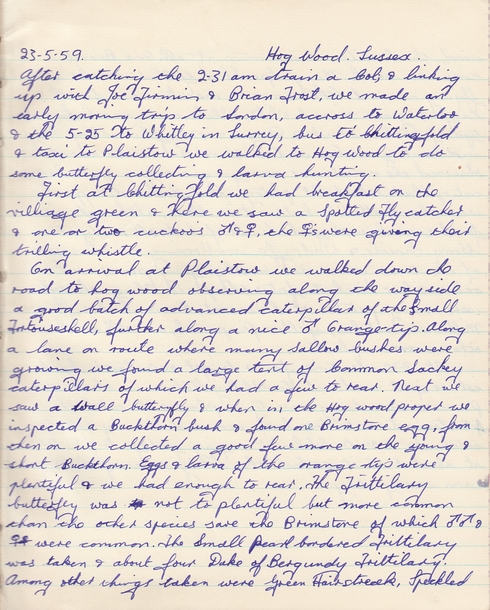 23-5-59. Hog Wood. Sussex.
After catching the 2-31am train a Col, & linking
up with Joe Firmin & Brian Frost, we made an
early morning trip to London, accross to Waterloo
& the 5-25 to Whitley in Surrey, bus to Chittingfold
& taxi to Plaistow we walked to Hog Wood to do
some butterfly collecting & larva hunting.
First at Chittingfold we had breakfast on the
villiage green & here we saw a Spotted Flycatcher
& one or two cuckoos ♂&♀, the ♀s were giving their
trilling whistle.
On arrival at Plaistow we walked down the
road to hog wood observing along the wayside
a good batch of advanced caterpillar of the Small
Tortouseshell, further along a nice ♂ Orange-tip. Along
a lane on route where many sallow bushes were
growing we found a large tent of Common Lackey
caterpillars of which we had a few to rear. Next we
saw a Wall butterfly & when in the Hog wood proper we
inspected a Buckthorn bush & found one Brimstone egg, from
then on we collected a good few more on the young &
short Buckthorn. Eggs & larva of the orange-tip were
plentiful & we had enough to rear. The Frittilary
butterfly was not to plentiful but more common
than the other species save the Brimstone of which ♂♂ &
♀♀ were common. The Small Pearl bordered Frittilary
was taken & about four Duke of Bergundy Frittilary.
Among other things taken were Green Hairstreak, Speckled